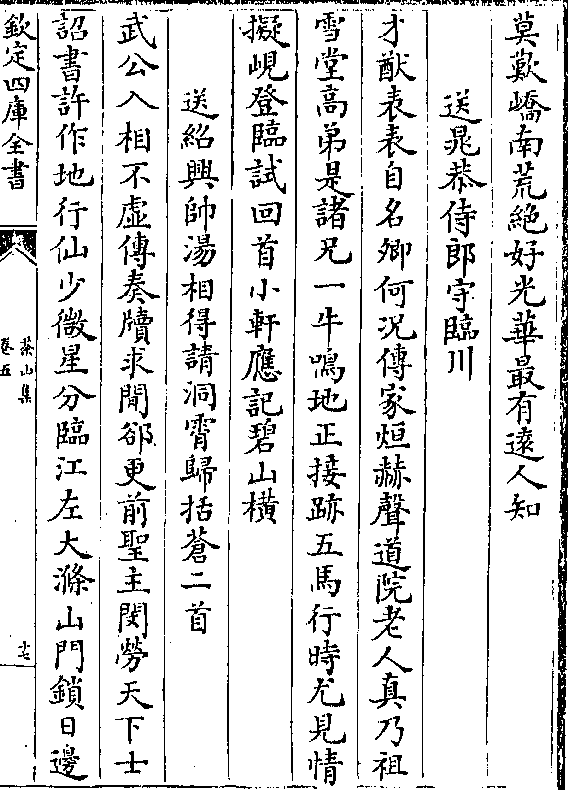 莫歎嶠南荒絶好光華最有逺人知
送晁恭侍郎守臨川
才猷表表自名卿何况傳家烜赫聲道院老人真乃祖
雪堂高弟是諸兄一牛鳴地正接跡五馬行時尤見情
擬峴登臨試回首小軒應記碧山橫
送紹興帥湯相得請洞霄歸括蒼二首
武公入相不虛傳奏牘求閒郤更前聖主閔勞天下士
詔書許作地行仙少微星分臨江左大滌山門鎖日邊
欽定四庫全書
茶山集
卷五
十七